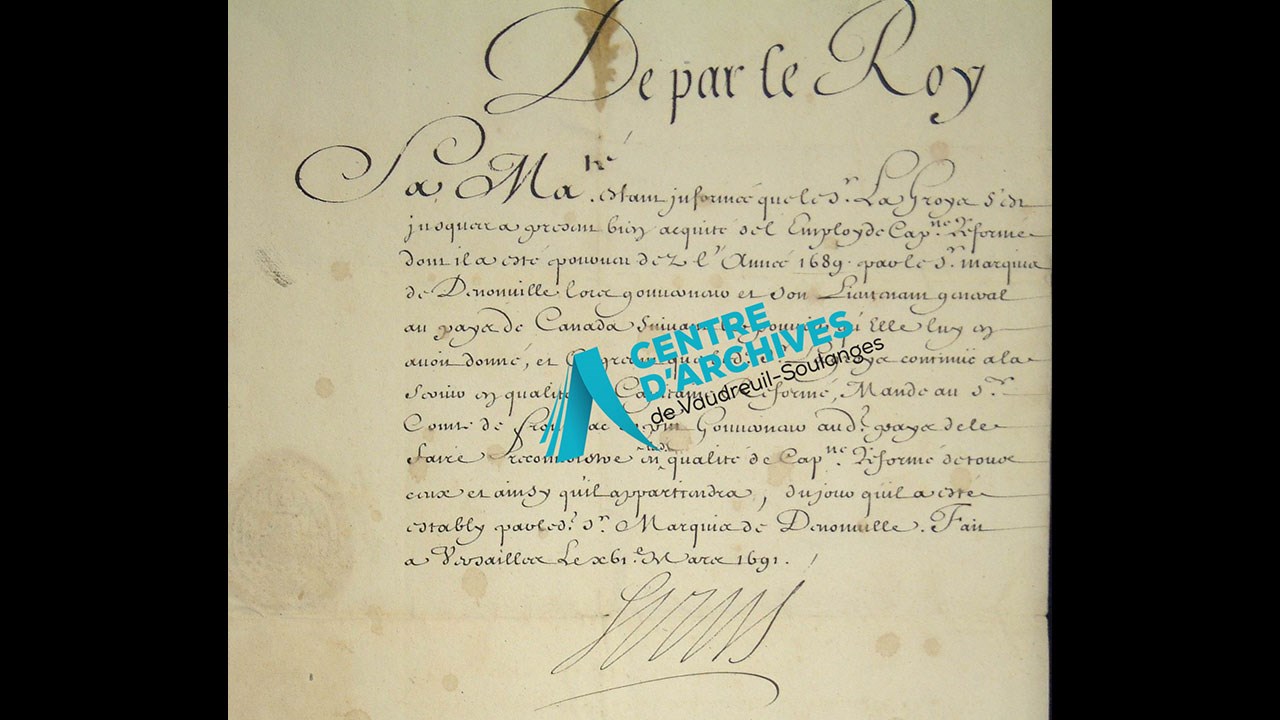 De par le Roy
Sa Ma.té estant informée que le s.r La Groye s'est
jusques a present bien acquité de l'Employ de Cap.ne Reformé
dont il a esté pourveu dez l'Année 1689. par le S.r Marquis
de Denonville lors gouverneur et son Lieutenant general
au pays de Canada suivant le pouvoir qu'Elle luy en
avoit donné, et Sa continüe a la
servir en qualité Capitaine Reformé, Mande au S.r
Comte de Gouverneur aud.t pays de le
faire Reconnoistre en lad. qualité de Cap.ne Reformé de tous
ceux et ainsy qu'il appartiendra, du jour qu'il a esté
estably par led.t S.r Marquis de Denonville. Fait
a Versailles Le xvi.e Mars 1691.
Louis
CENTRE
D'ARCHIVES
de Vaudreuil-Soulanges